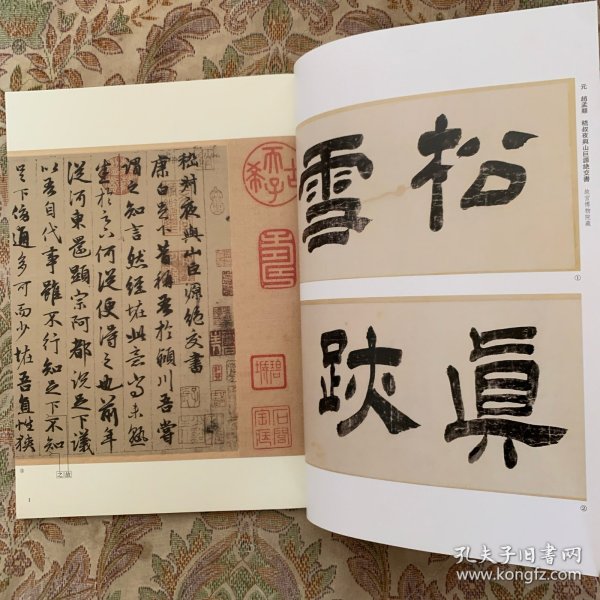 元 趙孟頫 嵇叔夜與山巨源絕交書 故宮博物院藏
松雪
①
眞跡
②
古希天子
嵇叔夜與山巨源絕交書
康白足下昔稱吾於潁川吾嘗
謂之知言然經怪此意尚未熟
悉於足下何從便得之也前年
從河東還顯宗阿都說足下議
以吾自代事雖不行知足下不知
足下傍通多可而少怪吾直性狹
故之
③
1
孔夫子旧书网
www.kongfz.com